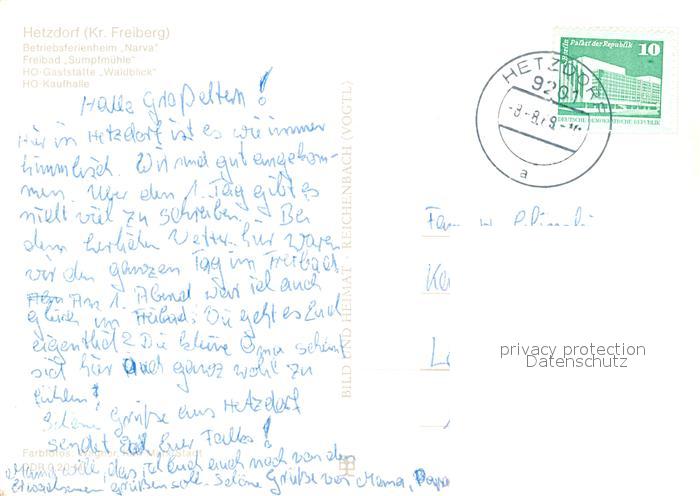 Hetzdorf (Kr. Freiberg)
Betriebsferienheim „Narva"
Freibad „Sumpfmühle"
HO-Gaststätte „Waldblick"
HO-Kaufhalle
Hallo Großeltern!
Hier in Hetzdorf ist es wie immer
himmlisch. Wir sind gut angekom-
men. Über den 1. Tag gibt es
nicht viel zu schreiben. Bei
dem herrlichen Wetter hier waren
wir den ganzen Tag im Freibad
Am 1. Abend war ich auch
gleich im Freibad. Wie geht es Euch
eigentlich? Die kleine Oma scheint
sich hier auch ganz wohl zu
fühlen!
Schöne Grüße aus Hetzdorf
sendet Euer Falko!
Mama will, das ich Euch auch noch von den
grüßen soll. Schöne Grüße von Mama, Papa
BILD UND HEIMAT · REICHENBACH (VOGTL)
Palast der Republik
10
DEUTSCHE DEMOKRATISCHE REPUBLIK
HETZDORF
9201
a
Fam
privacy protection
Datenschutz